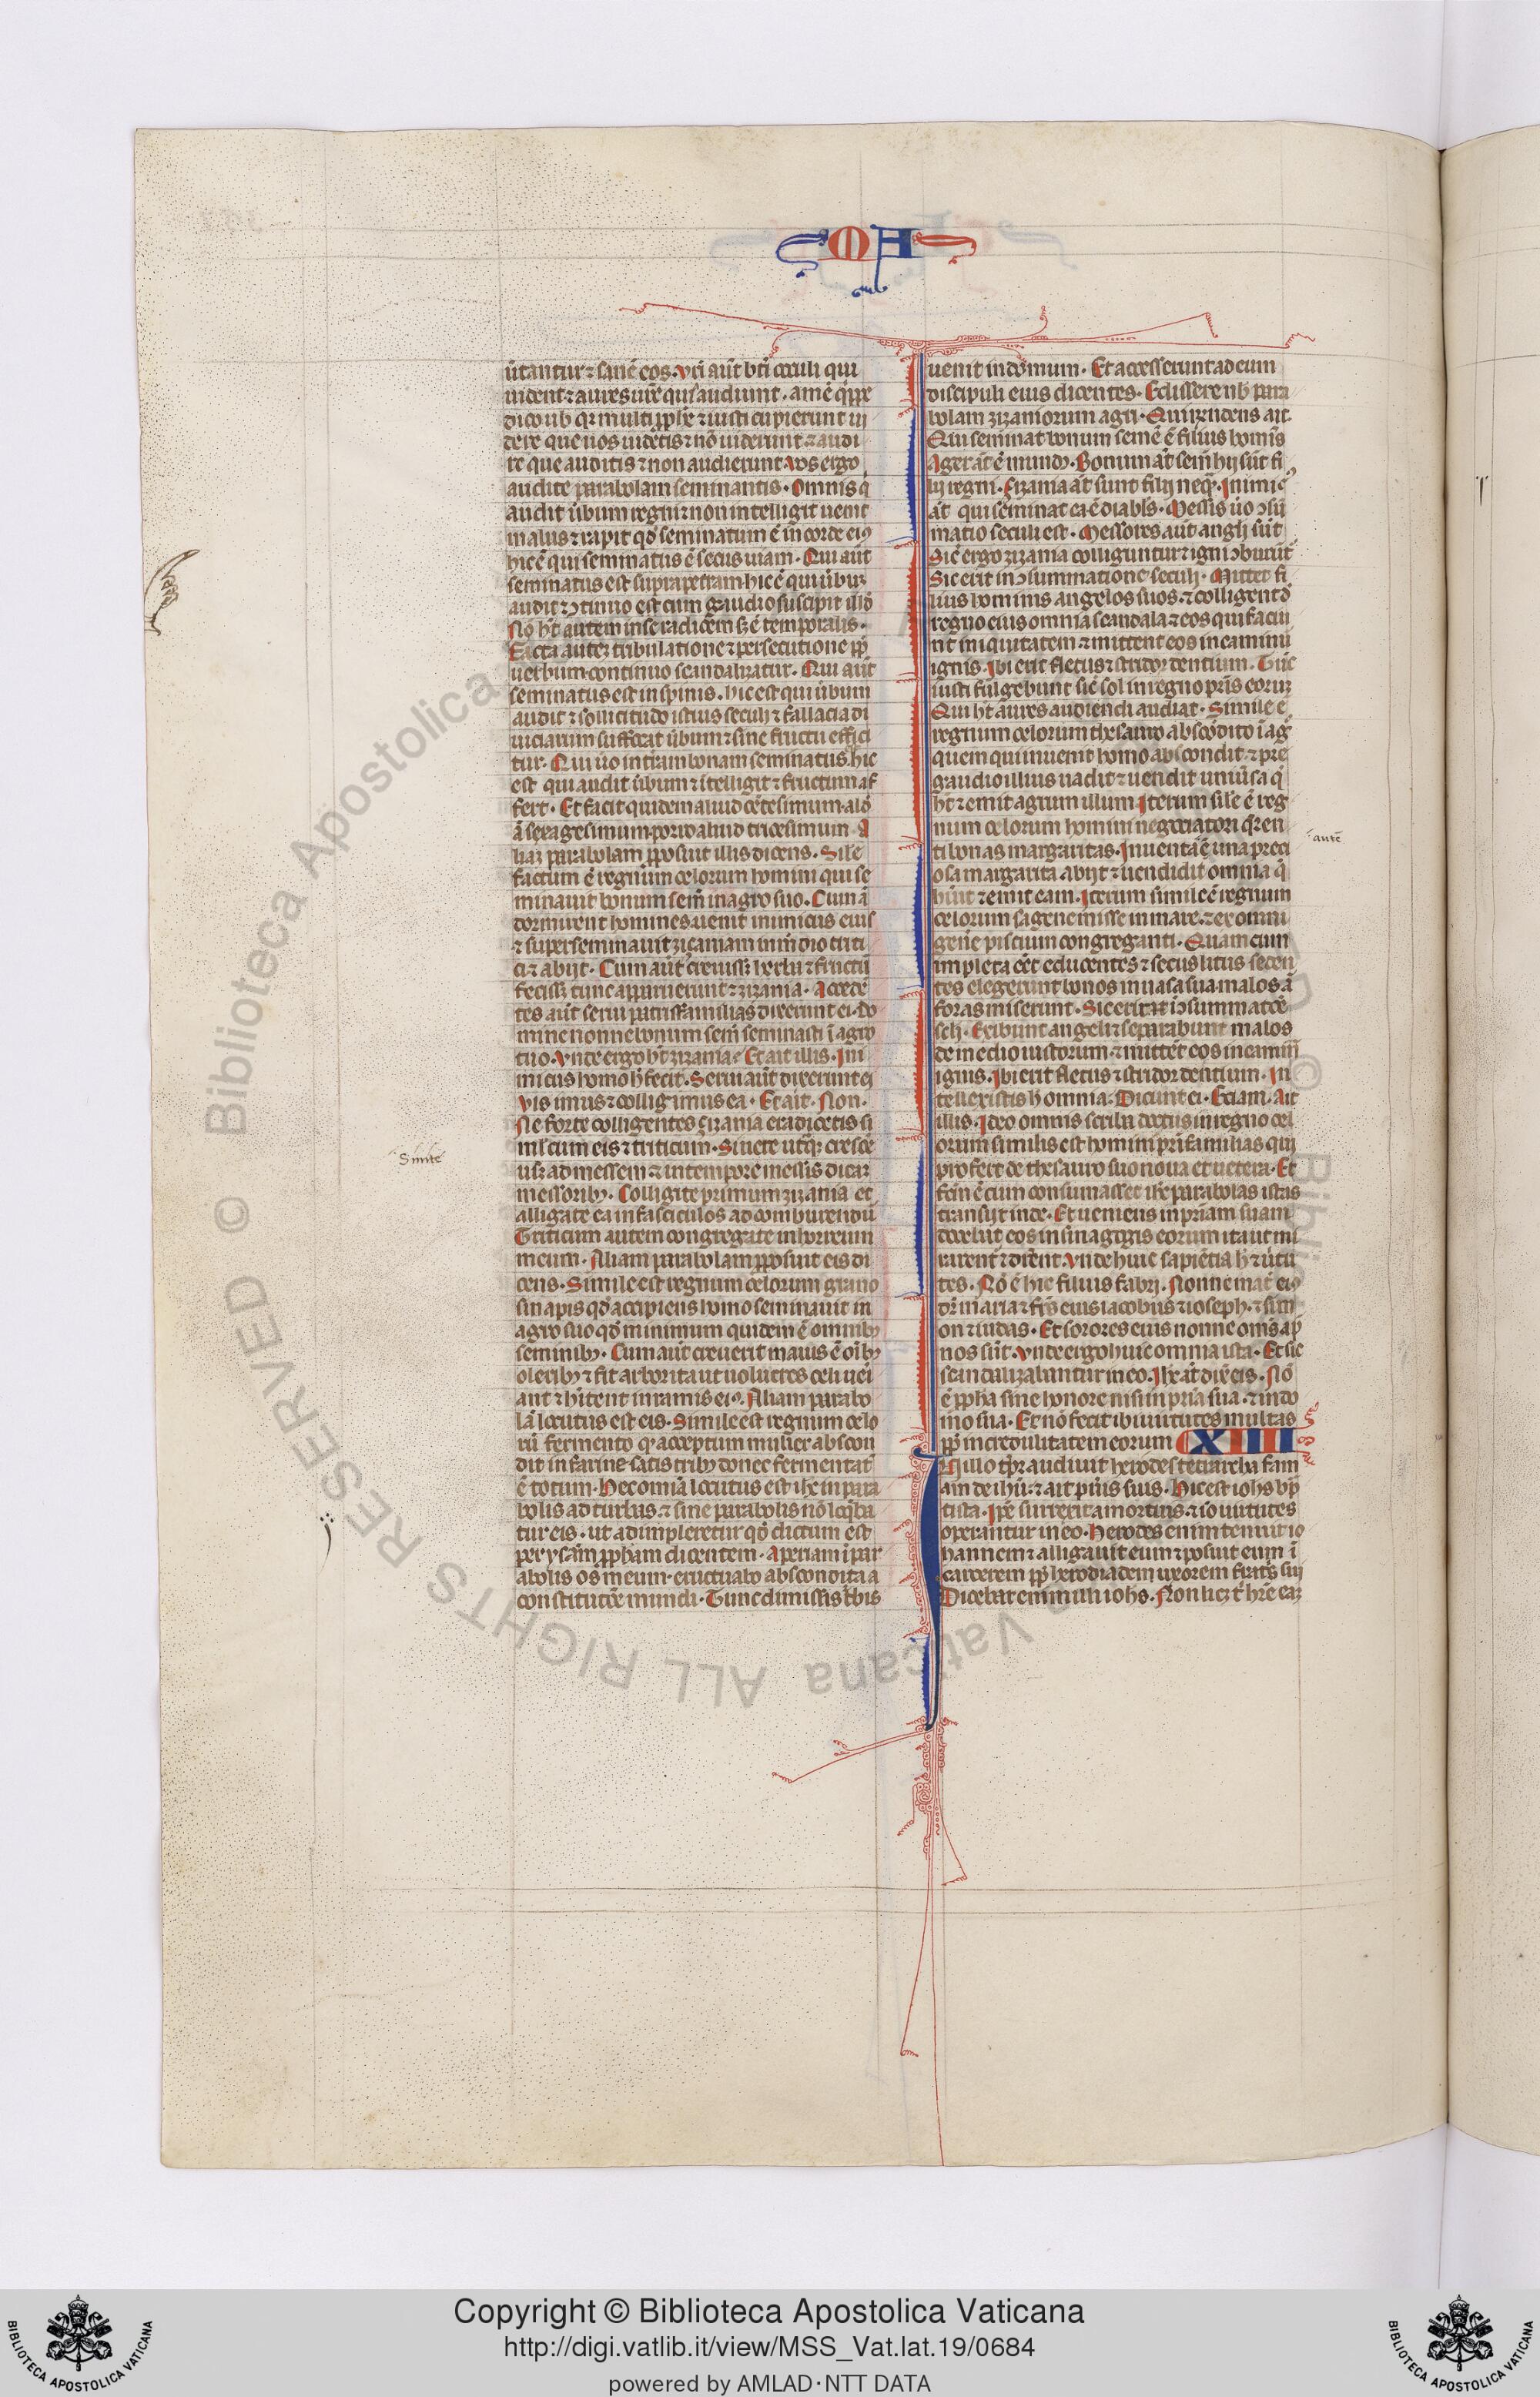 MA
ūtantur ⁊ sanē eos. Vr̄i aūt bt̄i oculi qui
uident ⁊ aures ur̄e qui audiunt. amē q̄ppe
dico uob qr multi pphe ⁊ iusti cupierunt ui
dere que uos uidetis ⁊ nō uiderunt ⁊ audi
re que auditis ⁊ non audierunt. Vos ergo
audite parabolam seminantis. Omnis q̄
audit ūbum regni ⁊ non intelligit uenit
malus ⁊ rapit qd̄ seminatum ē in corde eiꝰ
hic ē qui seminatus ē secus uiam. Qui aūt
seminatus est supra petram hic ē qui ūbuꝫ
audit ⁊ ↄtinuo est cum gaudio suscipit illd̄
Nō ht̄ autem in se radicem sꝫ ē temporalis.
Facta auteꝫ tribulatione ⁊ persecutione pp̄
uerbum. continuo scandalizatur. Qui aūt
seminatus est in spinis. hic est qui ūbum
audit ⁊ sollicitudo istius seculi ⁊ fallacia di
uiciarum suffocat ūbum ⁊ sine fructu effici
tur. Qui ūo in terram bonam seminatus. hic
est qui audit ūbum ⁊ ītelligit ⁊ fructum af
fert. Et facit quidem aliud cētesimum. alid̄
ā sexagesimum. porro aliud tricesimum. A
liaꝫ parabolam pposuit illis dicens. Sile
factum ē regnum celorum homini qui se
minauit bonum sem̄ in agro suo. Cum ā
dormirent homines. uenit inimicus eius
⁊ superseminauit zizaniam in m̄dio triti
ci ⁊ abijt. Cum aūt creuisꝫ herba ⁊ fructū
fecisꝫ tunc apparuerunt ⁊ zizania. Accedē
tes aūt serui patrisfamilias dixerunt ei. Do
mine nonne bonum sem̄ seminasti ī agro
tuo. Vnde ergo ht̄ zizania. Et ait illis. Ini
micus homo h̄ fecit. Serui aūt dixerunt ei
Vis imus ⁊ colligimus ea. Et ait. Non.
Ne forte colligentes zizania eradicetis si
ml̄ cum eis ⁊ triticum. Sinete utrqꝫ cresce
usqꝫ ad messem ⁊ in tempore messis dicaꝫ
messoribꝫ. Colligite primum zizania et
alligate ea in fasciculos ad comburendū
Triticum autem congregate in horreum
meum. Aliam parabolam pposuit eis di
cens. Simile est regnum celorum grano
sinapis qd̄ accipiens homo seminauit in
agro suo qd̄ minimum quidem ē omnibꝫ
seminibꝫ. Cum aūt creuerit maius ē oībꝫ
oleribꝫ ⁊ fit arbor ita ut uolucres celi ueī
ant ⁊ hītent in ramis eiꝰ. Aliam parabo
lā locutus est eis. Simile est regnum celo
rū fermento qd̄ acceptum mulier abscon
dit in farine satis tribꝫ donec fermentat̄
ē totum. Hec omīa locutus est ihc in para
bolis ad turbas. ⁊ sine parabolis nō loq̄ba
tur eis. ut adimpleretur qd̄ dictum est
per ysaiam ppham dicentem. Aperiam ī par
abolis os meum. eructuabo abscondita a
constitutōe mundi. Tunc dimissis tbis
uenit in domum. Et accesserunt ad eum
discipuli eius dicentes. Edissere nob para
bolam zizaniorum agri. Qui rn̄dens ait.
Qui seminat bonum semē ē filius homīs
Ager āt ē mundꝰ. Bonum āt sem̄ hij sūt fi
lij regni. Zizania āt sunt filij neq̄. Inimicꝰ
āt qui seminat ea ē diabls. Messis ūo ↄsū
matio seculi est. Messores aūt angli sūt
Sic̄ ergo zizania colliguntur ⁊ igni ↄburūt
Sic erit in ↄsummatione seculi. Mittet fi
lius hominis angelos suos. ⁊ colligent d̄
regno eius omnia scandala ⁊ eos qui faciu
nt iniquitatem ⁊ mittent eos in caminū
ignis. Ibi erit fletus ⁊ stridor dentium. Tūc
iusti fulgebunt sic̄ sol in regno pr̄is eoruꝫ
Qui ht̄ aures audiendi audiat. Simile ē
regnum celorum thesauro abscōdito ī agº
quem qui inuenit homo abscondit. ⁊ pre
gaudio illius uadit ⁊ uendit uniu̇sa q̄
ht̄ ⁊ emit agrum illum. Iterum sile ē reg
num celorum homini negociatori qr̄en
ti bonas margaritas. Inuenta ē una preci
osa margarita. abijt ⁊ uendidit omnia q̄
hūit ⁊ emit eam. Iterum simile ē regnum
celorum sagene misse in mare. ⁊ ex omni
gen̄e piscium congreganti. Quam cum
impleta eēt educentes ⁊ secus litus seden
tes elegerunt bonos in uasa sua. malos ā
foras miserunt. Sic erit in ↄsummatōe
scli. Exibunt angeli ⁊ separabunt malos
de medio iustorum. ⁊ mittēt eos in camin̄
ignis. Ibi erit fletus ⁊ stridor dentium. In
tellexistis h̄ omnia. Dicunt ei. Eciam. Ait
illis. Ideo omnis scriba doctus in regno cel
orum similis est homini pr̄ifamilias qui
profert de thesauro suo noua et uetera. Et
fcm̄ ē cum consumasset ihc parabolas istas
transijt inde. Et ueniens in pr̄iam suam
docebat eos in sinagogis eorum ita ut mi
rarent̄ ⁊ dicēnt. Vnde huic sapiētia h̄ ⁊ uirtu
tes. Nō ē hic filius fabri. Nonne mat̄ eiꝰ
dr̄ maria ⁊ frs̄ eius iacobus ⁊ ioseph. ⁊ sim
on ⁊ iudas. Et sorores eius nonne om̄s ap̄
nos sūt. Vnde ergo huic omnia ista. Et sic
scandalizabantur in eo. Ihc āt dix̄ eis. Nō
ē ppha sine honore nisi in pr̄ia sua. ⁊ in do
mo sua. Et nō fecit ibi uirtutes multas
pp̄ incredulitatem eorum XIIII
IN illo tp̄r audiuit herodes tetrarcha fam
am de ihū. ⁊ ait pueris suis. Hic est iohs bp̄
tista. Ip̄e surrexit a mortuis. ⁊ iō uirtutes
operantur in eo. Herodes enim tenuit io
hannem ⁊ alligauit eum ⁊ posuit eum ī
carcerem pp̄ herodiadem uxorem fratris sui
Dicebat enim illi iohs. Non licꝫ t̄ hr̄e eaꝫ
Sinite
autē
Copyright © Biblioteca Apostolica Vaticana
http://digi.vatlib.it/view/MSS_Vat.lat.19/0684
powered by AMLAD·NTT DATA
BIBLIOTECA APOSTOLICA VATICANA
BIBLIOTECA APOSTOLICA VATICANA
© Biblioteca Apostolica Vaticana ALL RIGHTS RESERVED